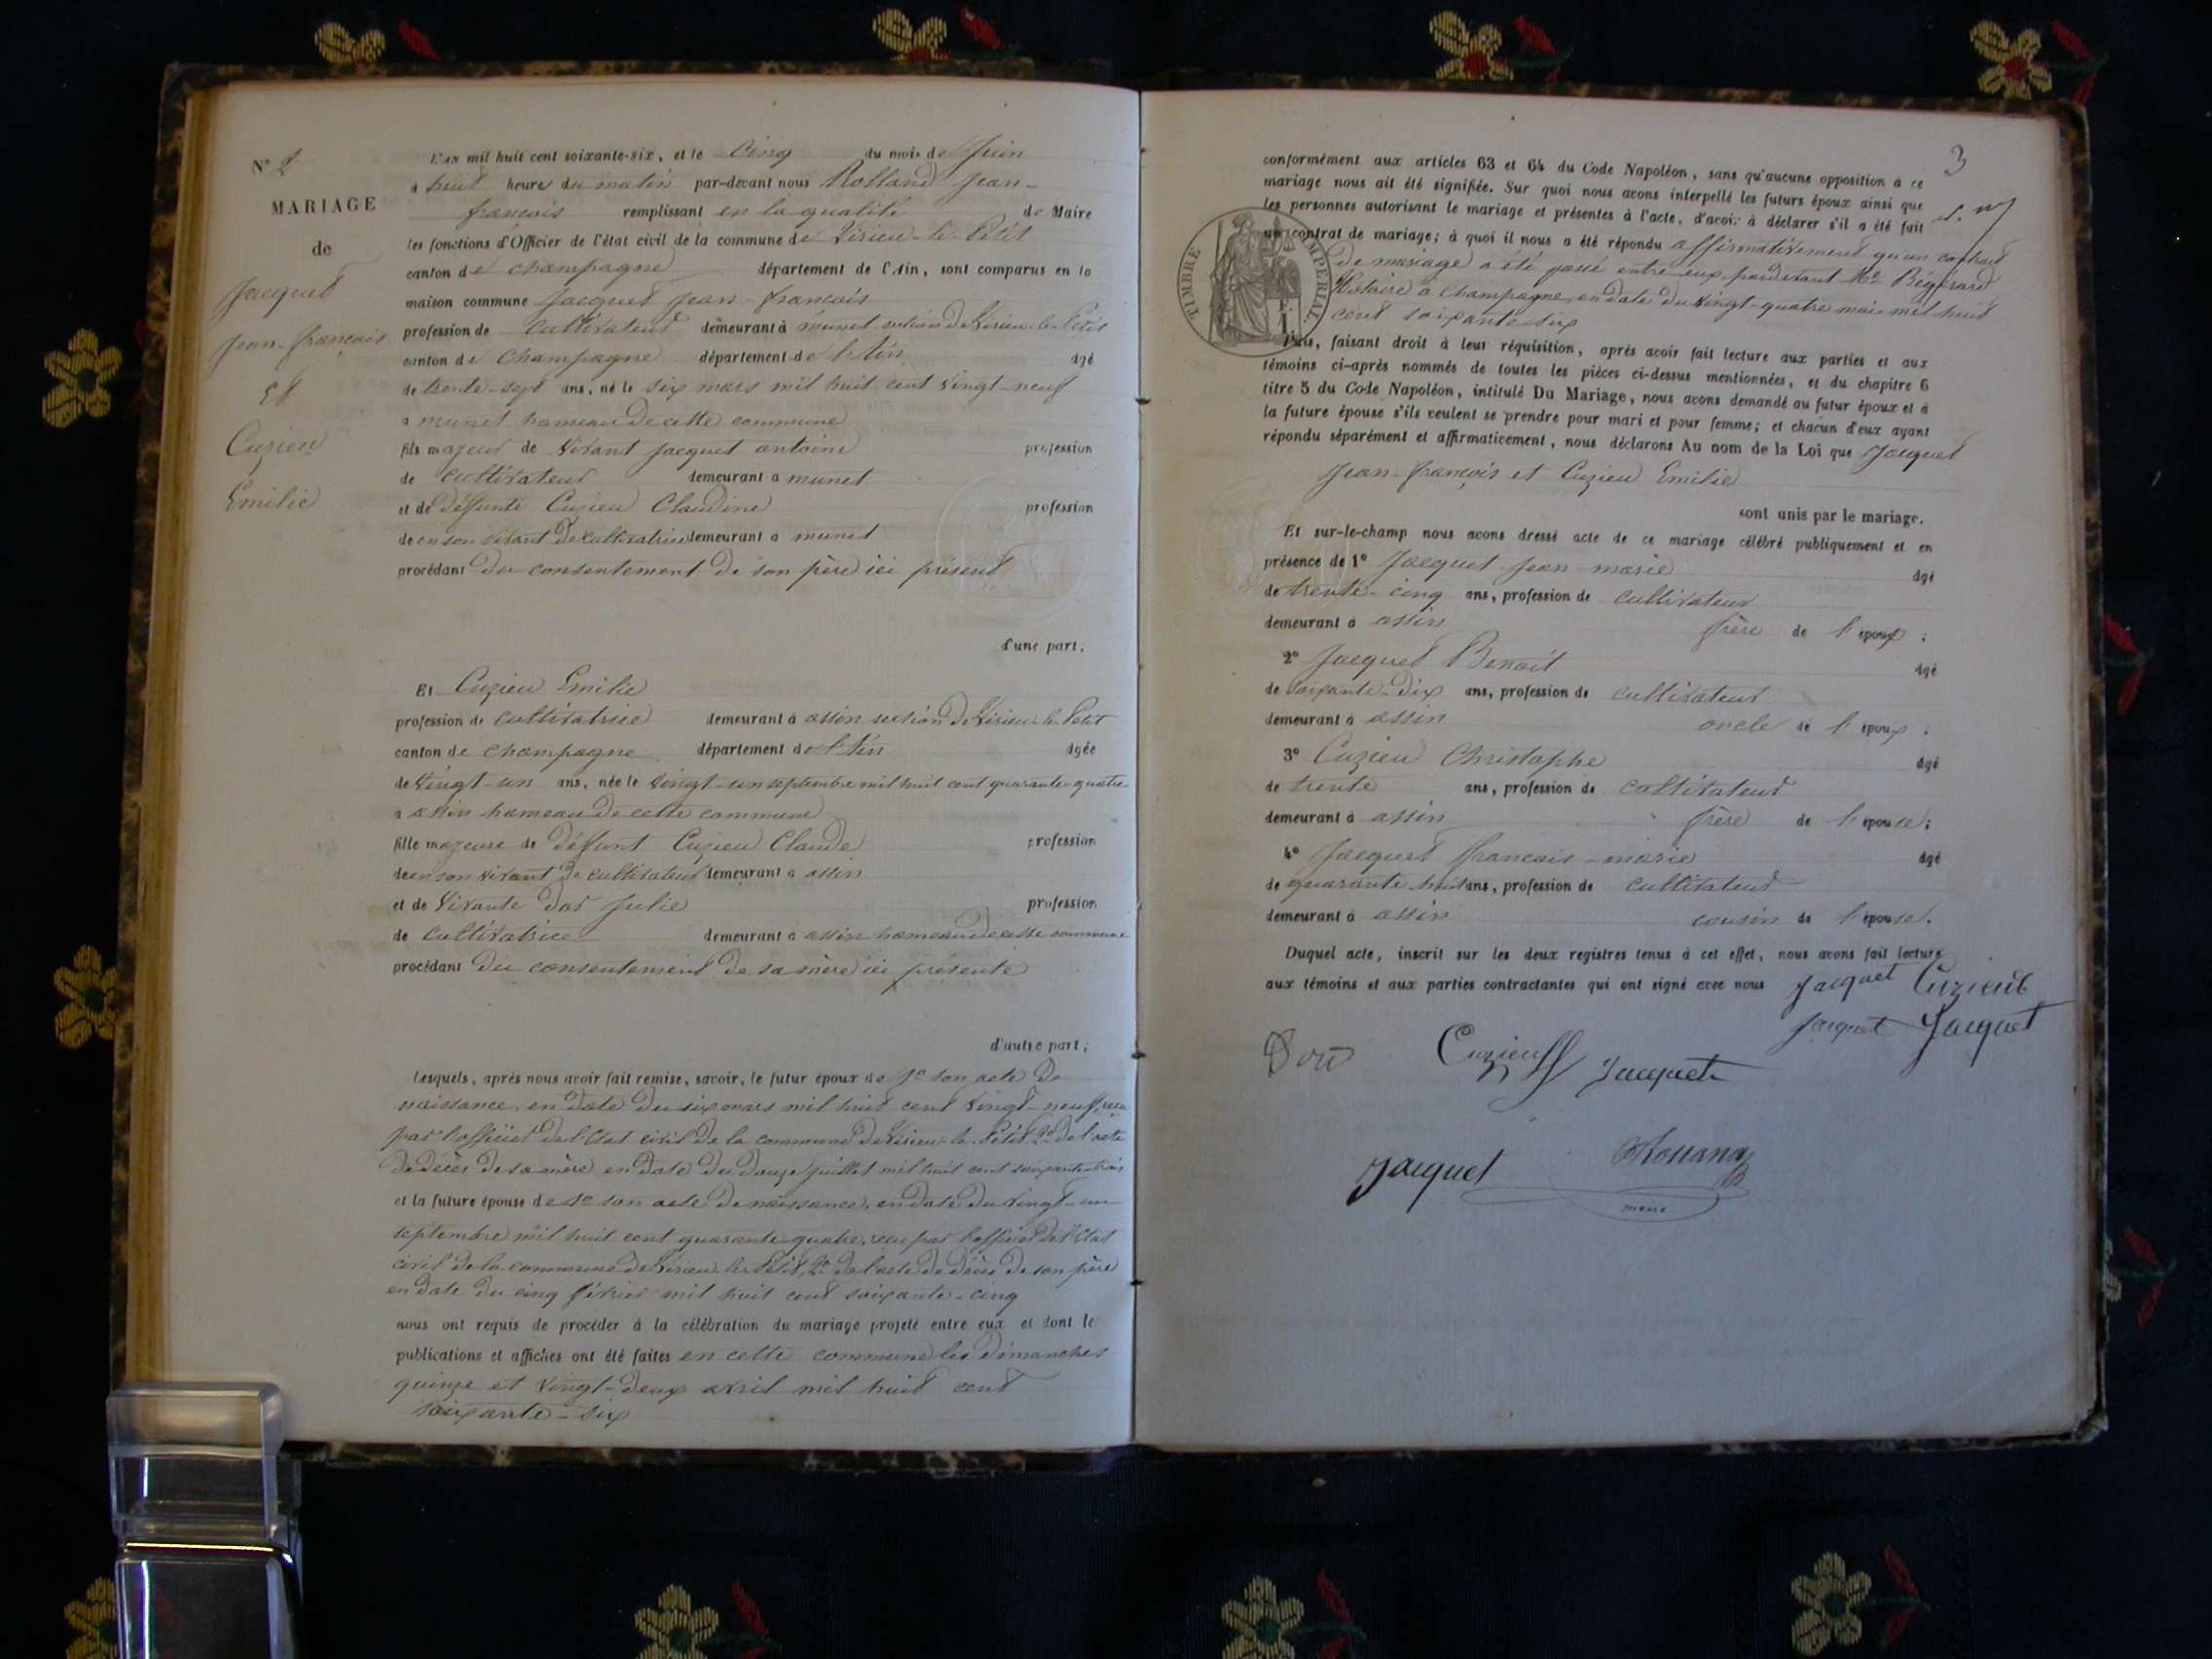 N° 2
MARIAGE
de
Jacquet
Jean-françois
et
Cuzieu
Emilie
L'an mil huit cent soixante-six, et le Cinq du mois de Juin
à huit heures du matin par-devant nous Rolland Jean-
françois remplissant en la qualité de Maire
les fonctions d'Officier de l'état civil de la commune de Virieu-le-Petit
canton de champagne département de l'Ain, sont comparus en la
maison commune Jacquet Jean-françois
profession de cultivateur demeurant à munet section de Virieu-le-Petit
canton de Champagne département de l'Ain âgé
de trente-sept ans, né le six mars mil huit cent vingt-neuf
à munet hameau de cette commune
fils majeur de vivant Jacquet antoine profession
de cultivateur demeurant à munet
et de déffunte Cuzieu Claudine profession
de en son vivant de cultivatrice demeurant à munet
procédant du consentement de son père ici présent
d'une part;
Et Cuzieu Emilie
profession de cultivatrice demeurant à assin section de Virieu-le-Petit
canton de champagne département de l'Ain âgée
de vingt-un ans, née le vingt-un septembre mil huit cent quarante-quatre
à assin hameau de cette commune
fille majeure de déffunt Cuzieu Claude profession
de en son vivant de cultivateur demeurant à assin
et de vivante Julie profession
de cultivatrice demeurant à assin hameau de cette commune
procédant du consentement de sa mère ici présente
d'autre part;
Lesquels, après nous avoir fait remise, savoir, le futur époux de 1° son acte de
naissance, en date du six mars mil huit cent vingt-neuf, reçu
par l'officier de l'Etat civil de la commune de Virieu-le-Petit, 2° de l'acte
de décès de sa mère en date du douze juillet mil huit cent soixante-trois
et la future épouse de 1° son acte de naissance, en date du vingt-un
septembre mil huit cent quarante-quatre, reçu par l'officier de l'Etat
civil de la commune de Virieu-le-Petit, 2° de l'acte de décès de son père
en date du cinq février mil huit cent soixante-cinq
nous ont requis de procéder à la célébration du mariage projeté entre eux et dont les
publications et affiches ont été faites en cette commune les dimanches
quinze et vingt-deux avril mil huit cent
soixante-six
3
conformément aux articles 63 et 64 du Code Napoléon, sans qu'aucune opposition à ce
mariage nous ait été signifiée. Sur quoi nous avons interpellé les futurs époux ainsi que
les personnes autorisant le mariage et présentes à l'acte, d'avoir à déclarer s'il a été fait
un contrat de mariage; à quoi il nous a été répondu affirmativement qu'un contrat
de mariage a été passé entre eux pardevant Me
Notaire à Champagne, en date du vingt-quatre mai mil huit
cent soixante-six
TIMBRE IMPÉRIAL
Puis, faisant droit à leur réquisition, après avoir fait lecture aux parties et aux
témoins ci-après nommés de toutes les pièces ci-dessus mentionnées, et du chapitre 6
titre 5 du Code Napoléon, intitulé Du Mariage, nous avons demandé au futur époux et à
la future épouse s'ils veulent se prendre pour mari et pour femme; et chacun d'eux ayant
répondu séparément et affirmativement, nous déclarons Au nom de la Loi que Jacquet
Jean-françois et Cuzieu Emilie
sont unis par le mariage.
Et sur-le-champ nous avons dressé acte de ce mariage célébré publiquement et en
présence de 1° Jacquet Jean-marie âgé
de trente-cinq ans, profession de cultivateur
demeurant à assin frère de l'époux;
2° Jacquet Benoit âgé
de soixante-dix ans, profession de cultivateur
demeurant à assin oncle de l'époux;
3° Cuzieu Christophe âgé
de trente ans, profession de cultivateur
demeurant à assin frère de l'épouse;
4° Jacquet francois-marie âgé
de quarante-huit ans, profession de cultivateur
demeurant à assin cousin de l'épouse.
Duquel acte, inscrit sur les deux registres tenus à cet effet, nous avons fait lecture
aux témoins et aux parties contractantes qui ont signé avec nous Jacquet Cuzieu
Jacquet Jacquet
Cuzieu Jacquet
Jacquet
maire